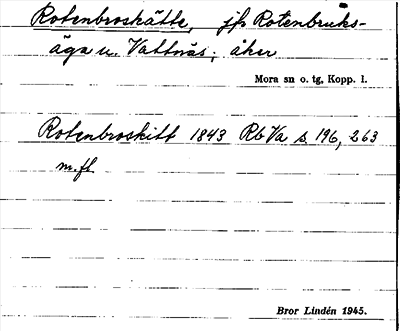 Rotenbroskätte, jfr Rotenbruks-
äga u. Vattnäs; åker
Mora sn o. tg, Kopp. l.
Rotenbroskitt 1843 Rb Va s. 196, 263
m.fl.
Bror Lindén 1945.